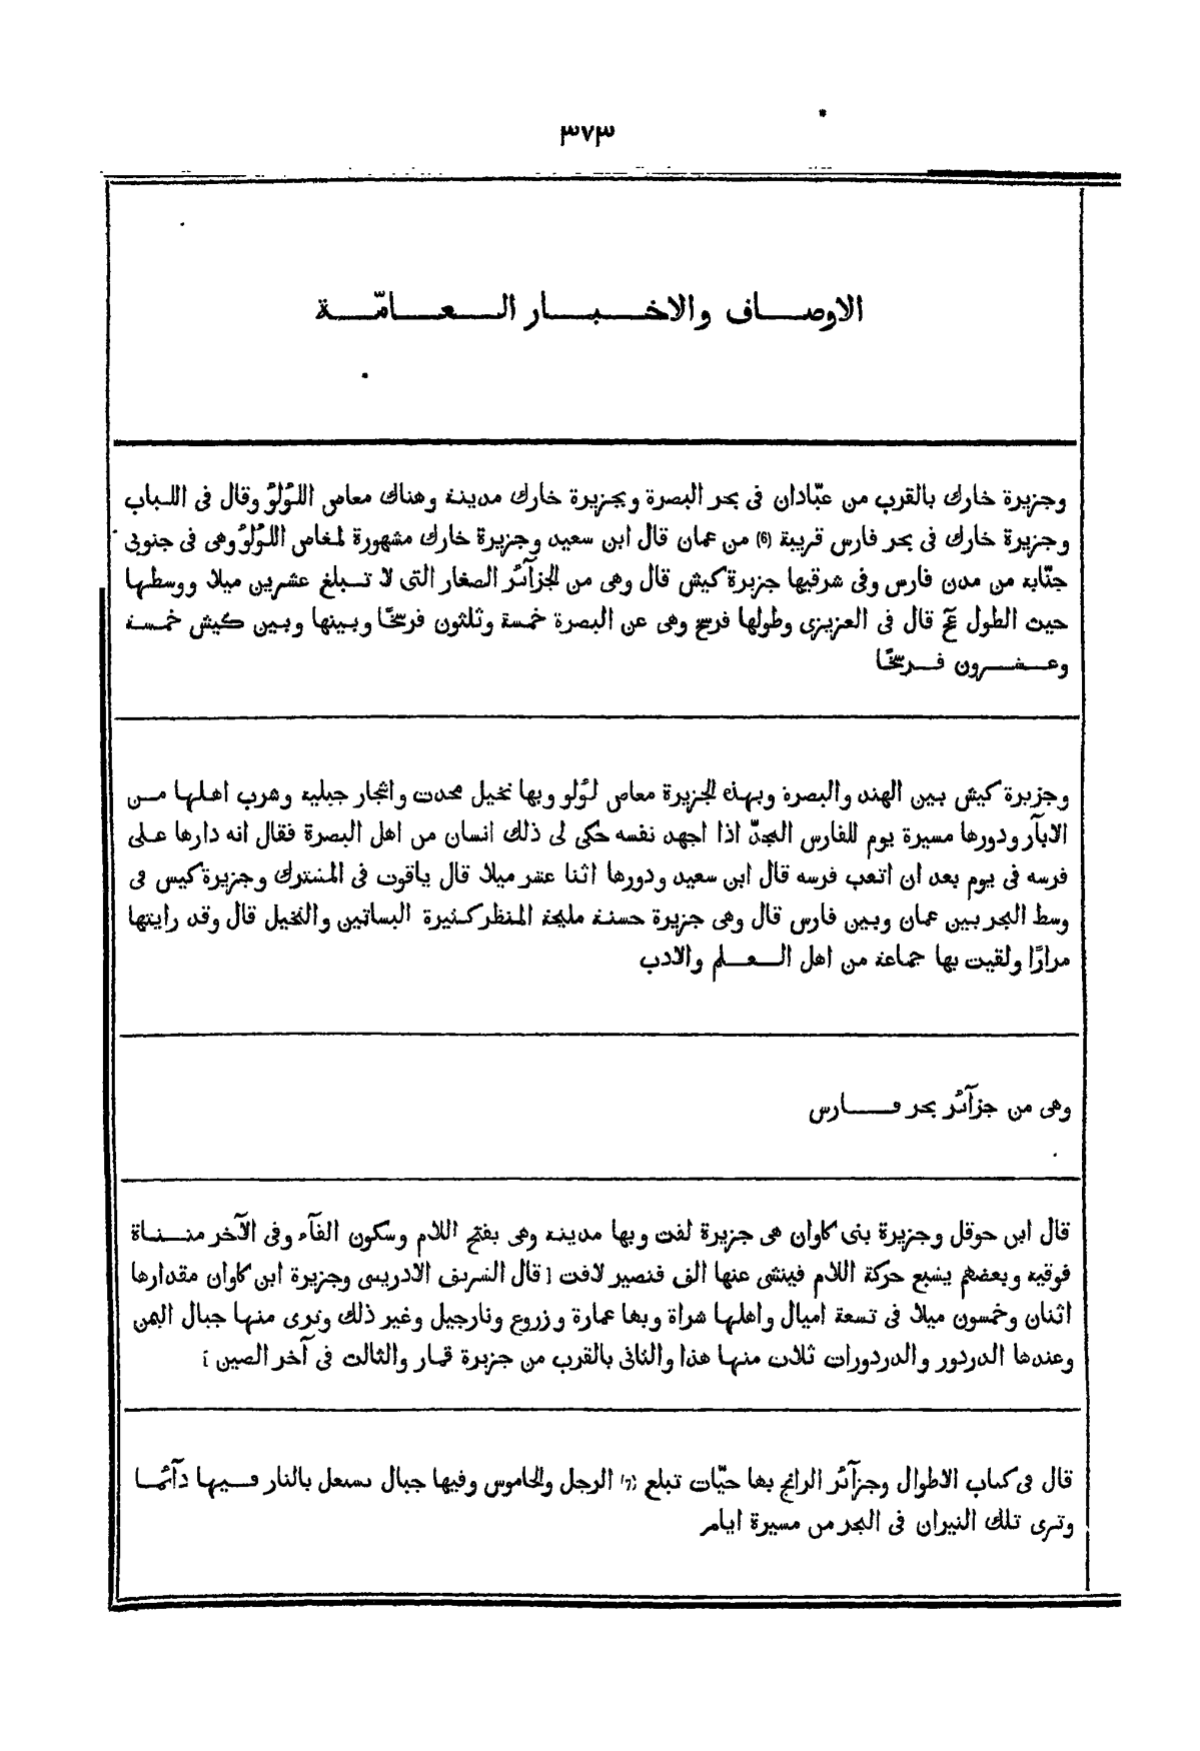 ٣٧٣
الاوصاف والاخبار العامّة
وجزيرة خارك بالقرب من عبّادان فى بحر البصرة وبجزيرة خارك مدينة وهناك معاص اللؤلؤ وقال فى اللباب
وجزيرة خارك فى بحر فارس قريبة (6) من عمان قال ابن سعيد وجزيرة خارك مشهورة لمغاص اللؤلؤ وهى فى جنوبى
جنّابه من مدن فارس وفى شرقيها جزيرة كيش قال وهى من الجزآئر الصغار التى لا تبلغ عشرين ميلا ووسطها
حيث الطول عج قال فى العزيزى وطولها فرسخ وهى عن البصرة خمسة وثلثون فرسخًا وبينها وبين كيش خمسة
وعشرون فرسخًا
وجزيرة كيش بين الهند والبصرة وبهذه الجزيرة معاص لؤلو وبها نخيل محدث واشجار جبليه وشرب اهلها من
الابآر ودورها مسيرة يوم للفارس المجدّ اذا اجهد نفسه حكى لى ذلك انسان من اهل البصرة فقال انه دارها على
فرسه فى يوم بعد ان اتعب فرسه قال ابن سعيد ودورها اثنا عشر ميلا قال ياقوت فى المشترك وجزيرة كيس فى
وسط البحر بين عمان وبين فارس قال وهى جزيرة حسنة مليحة المنظر كثيرة البساتين والنخيل قال وقد رايتها
مرارًا ولقيت بها جماعة من اهل العلم والادب
وهى من جزآئر بحر فارس
قال ابن حوقل وجزيرة بنى كاوان هى جزيرة لفت وبها مدينه وهى بفتح اللام وسكون الفآء وفى الآخر مثناة
فوقيه وبعضهم يشبع حركة اللام فينشى عنها الف فتصير لافت [ قال الشريف الادريسى وجزيرة ابن كاوان مقدارها
اثنان وخمسون ميلا فى تسعة اميال واهلها شراة وبها عمارة وزروع ونارجيل وغير ذلك وترى منها جبال اليمن
وعندها الدردور والدردورات ثلاث منها هذا والثانى بالقرب من جزيرة قمار والثالث فى آخر الصين ]
قال فى كتاب الاطوال وجزآئر الرانج بها حيّات تبلع (7) الرجل والجاموس وفيها جبال تشتعل بالنار فيها دآئما
وترى تلك النيران فى البحر من مسيرة ايام